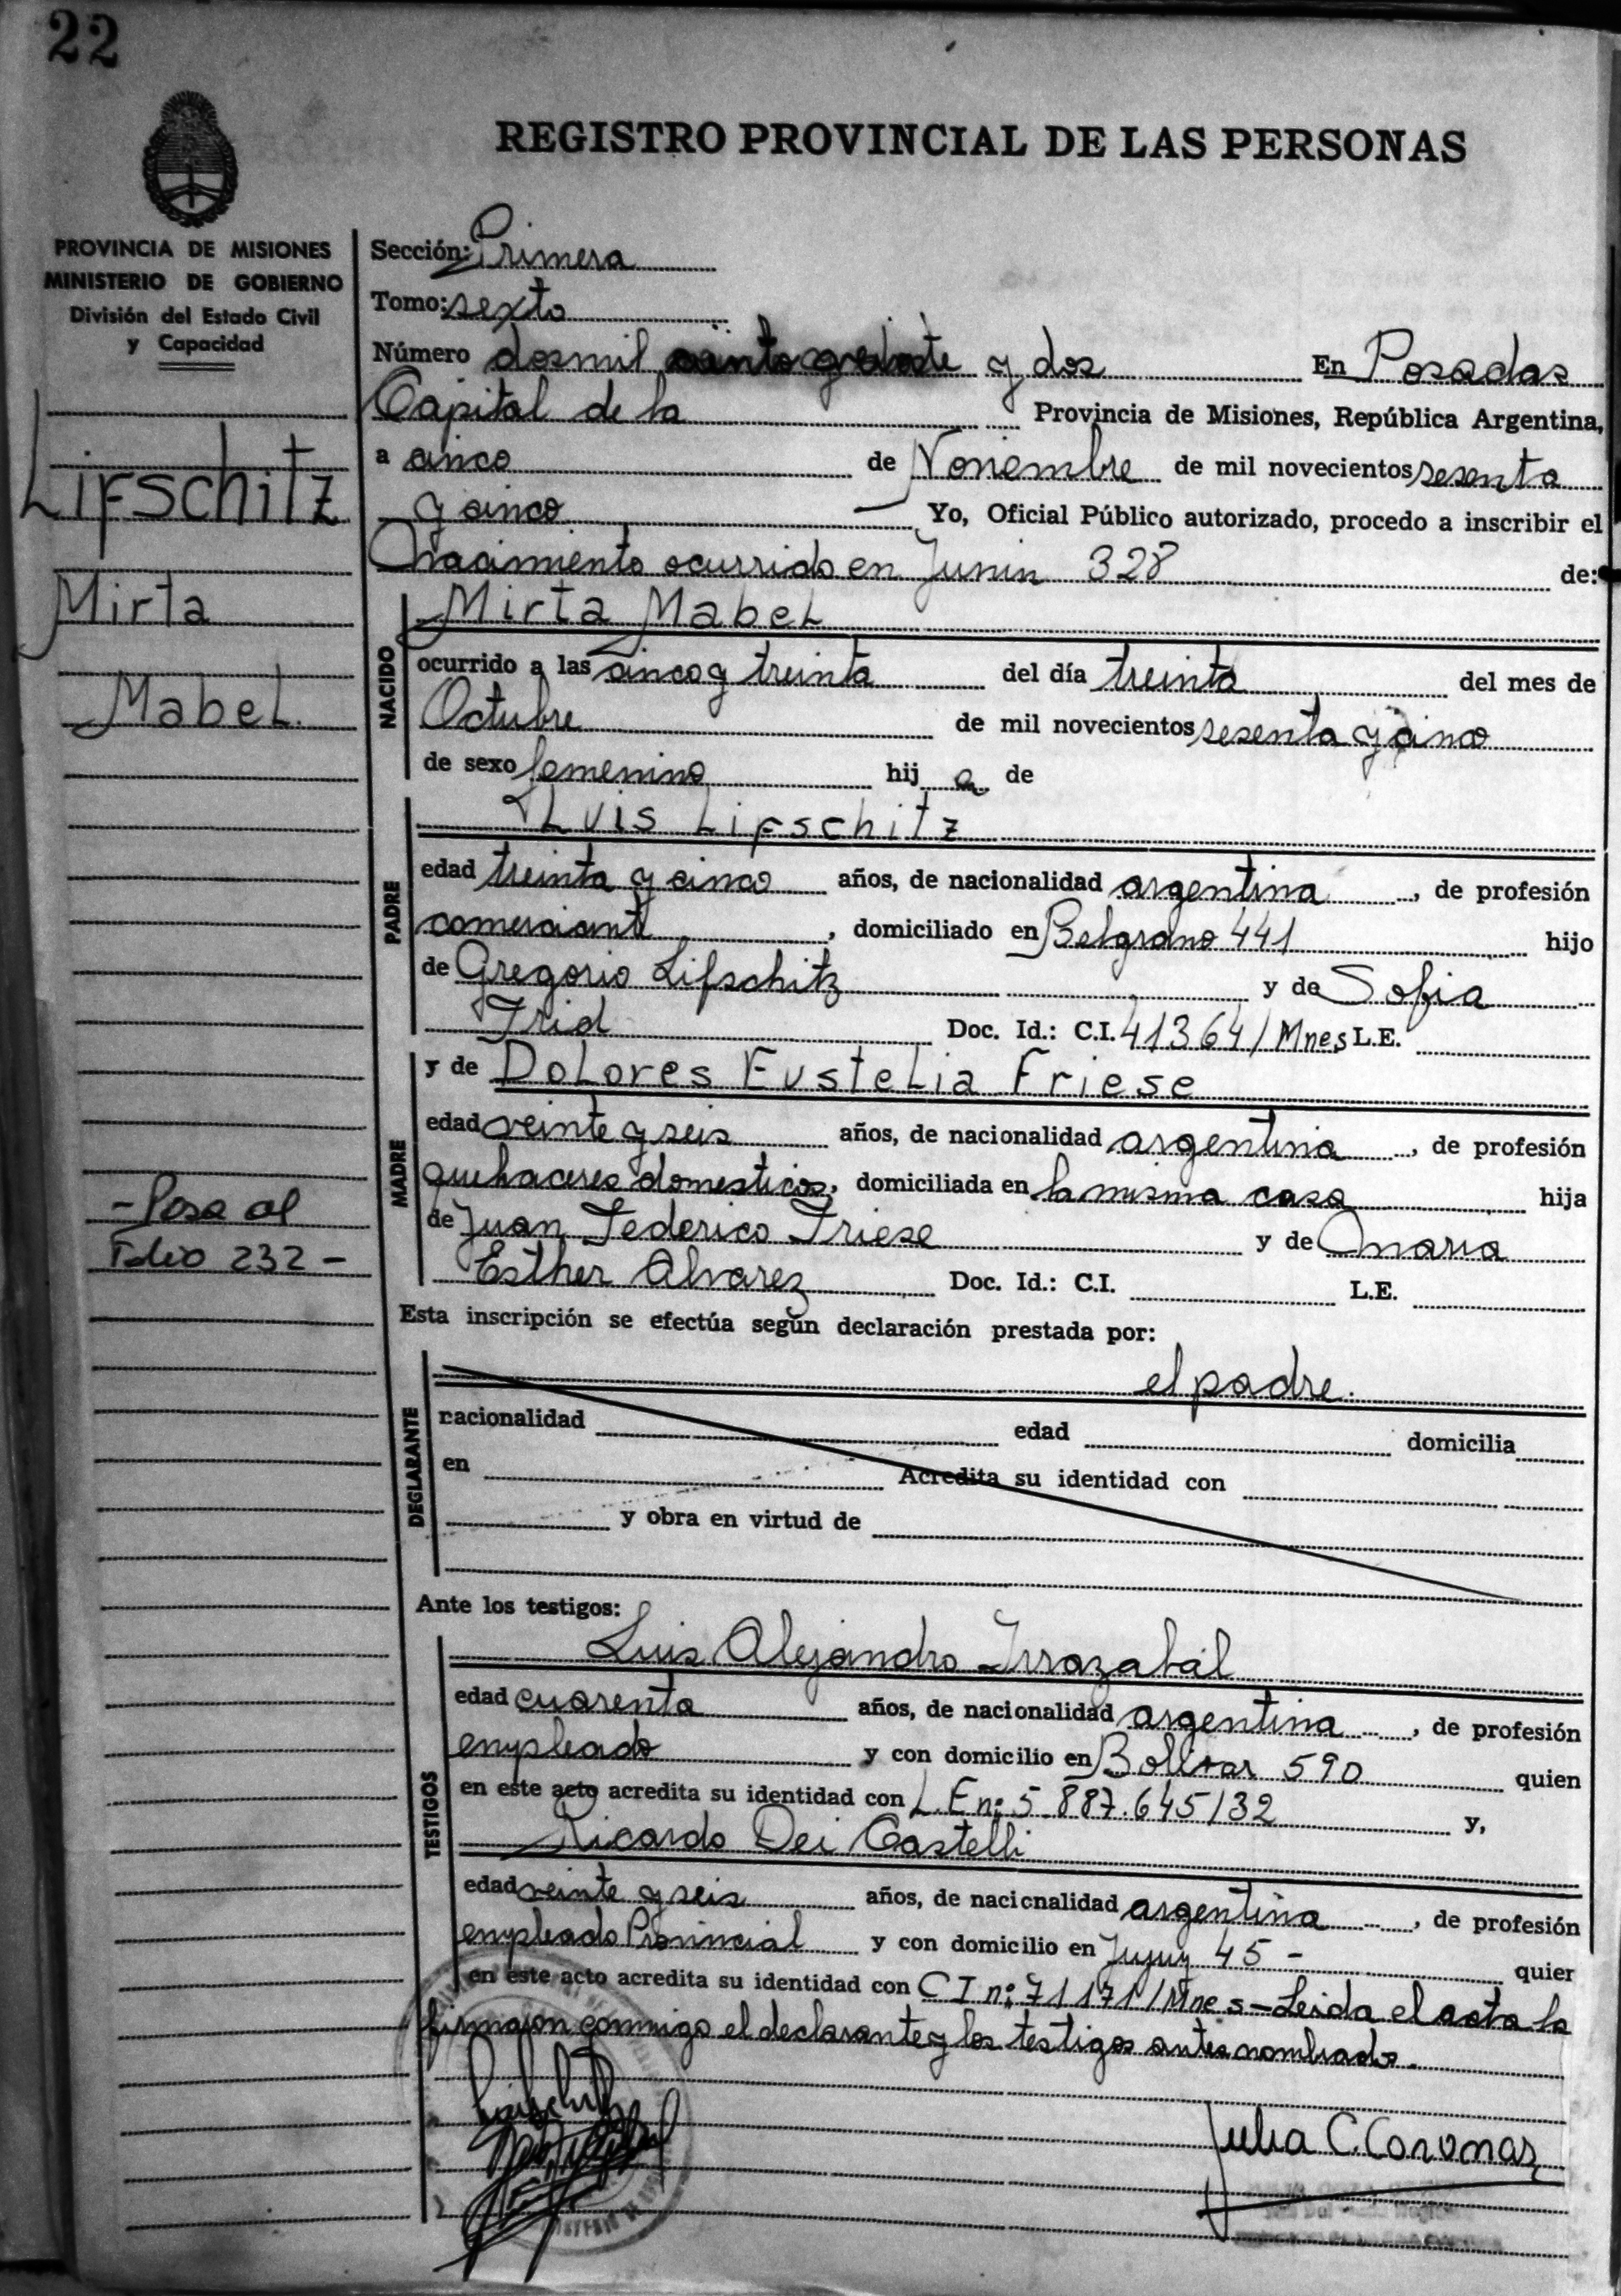 22
REGISTRO PROVINCIAL DE LAS PERSONAS
PROVINCIA DE MISIONES
MINISTERIO DE GOBIERNO
División del Estado Civil
y Capacidad
Lifschitz
Mirta
Mabel.
- Pasa al
Folio 232 -
Sección: Primera
Tomo: sexto
Número dosmil y dos En Posadas
Capital de la Provincia de Misiones, República Argentina,
a cinco de Noviembre de mil novecientos sesenta
y cinco Yo, Oficial Público autorizado, procedo a inscribir el
nacimiento ocurrido en Junin 328 de:
NACIDO
Mirta Mabel
ocurrido a las cinco y treinta del día treinta del mes de
Octubre de mil novecientos sesenta y cinco
de sexo femenino hij a de
PADRE
Luis Lifschitz
edad treinta y cinco años, de nacionalidad argentina, de profesión
comerciante, domiciliado en Belgrano 441 hijo
de Gregorio Lifschitz y de Sofia
Frid Doc. Id.: C.I. 41364/Mnes L.E.
MADRE
y de Dolores Eustelia Friese
edad veinte y seis años, de nacionalidad argentina, de profesión
quehaceres domesticos, domiciliada en la misma casa hija
de Juan Federico Friese y de Maria
Esther Alvarez Doc. Id.: C.I. L.E.
Esta inscripción se efectúa según declaración prestada por:
DECLARANTE
el padre.
nacionalidad edad domicilia
en Acredita su identidad con
y obra en virtud de
Ante los testigos:
TESTIGOS
Luis Alejandro Irrazabál
edad cuarenta años, de nacionalidad argentina, de profesión
empleado y con domicilio en Bolivar 590 quien
en este acto acredita su identidad con L.E n: 5.887.645/32 y,
Ricardo Dei Castelli
edad veinte y seis años, de nacionalidad argentina, de profesión
empleado Provincial y con domicilio en Jujuy 45 - quien
en este acto acredita su identidad con C I n: 71171/Mnes - Leida el acta la
firmaron conmigo el declarante y los testigos antes nombrados.
Julia C. Coromas